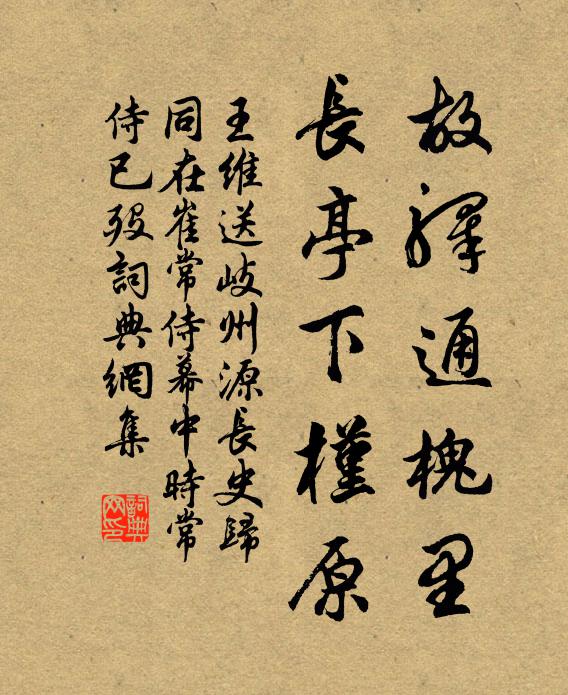 故驛通槐里
長亭下槿原
王維送岐州源長史歸
同在崔常侍幕中時常
侍已殁詞典網集
詞典網印